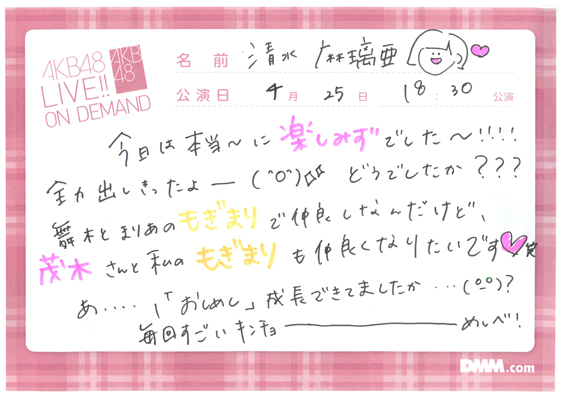 AKB48
LIVE!!
ON DEMAND
AKB
48
名前 清水 麻璃亜
公演日 4月25日 18:30 公演
今日は本当〜に楽しみずでした〜!!!!
全力出しきったよー(^o^) どうでしたか???
舞木とまりあのもぎまりで仲良しなんだけど、
茂木さんと私のもぎまりも仲良くなりたいです 笑
あ....、「おしめし」成長できてましたか...(°_°)?
毎回すごいキンチョーーめしべ!
DMM.com